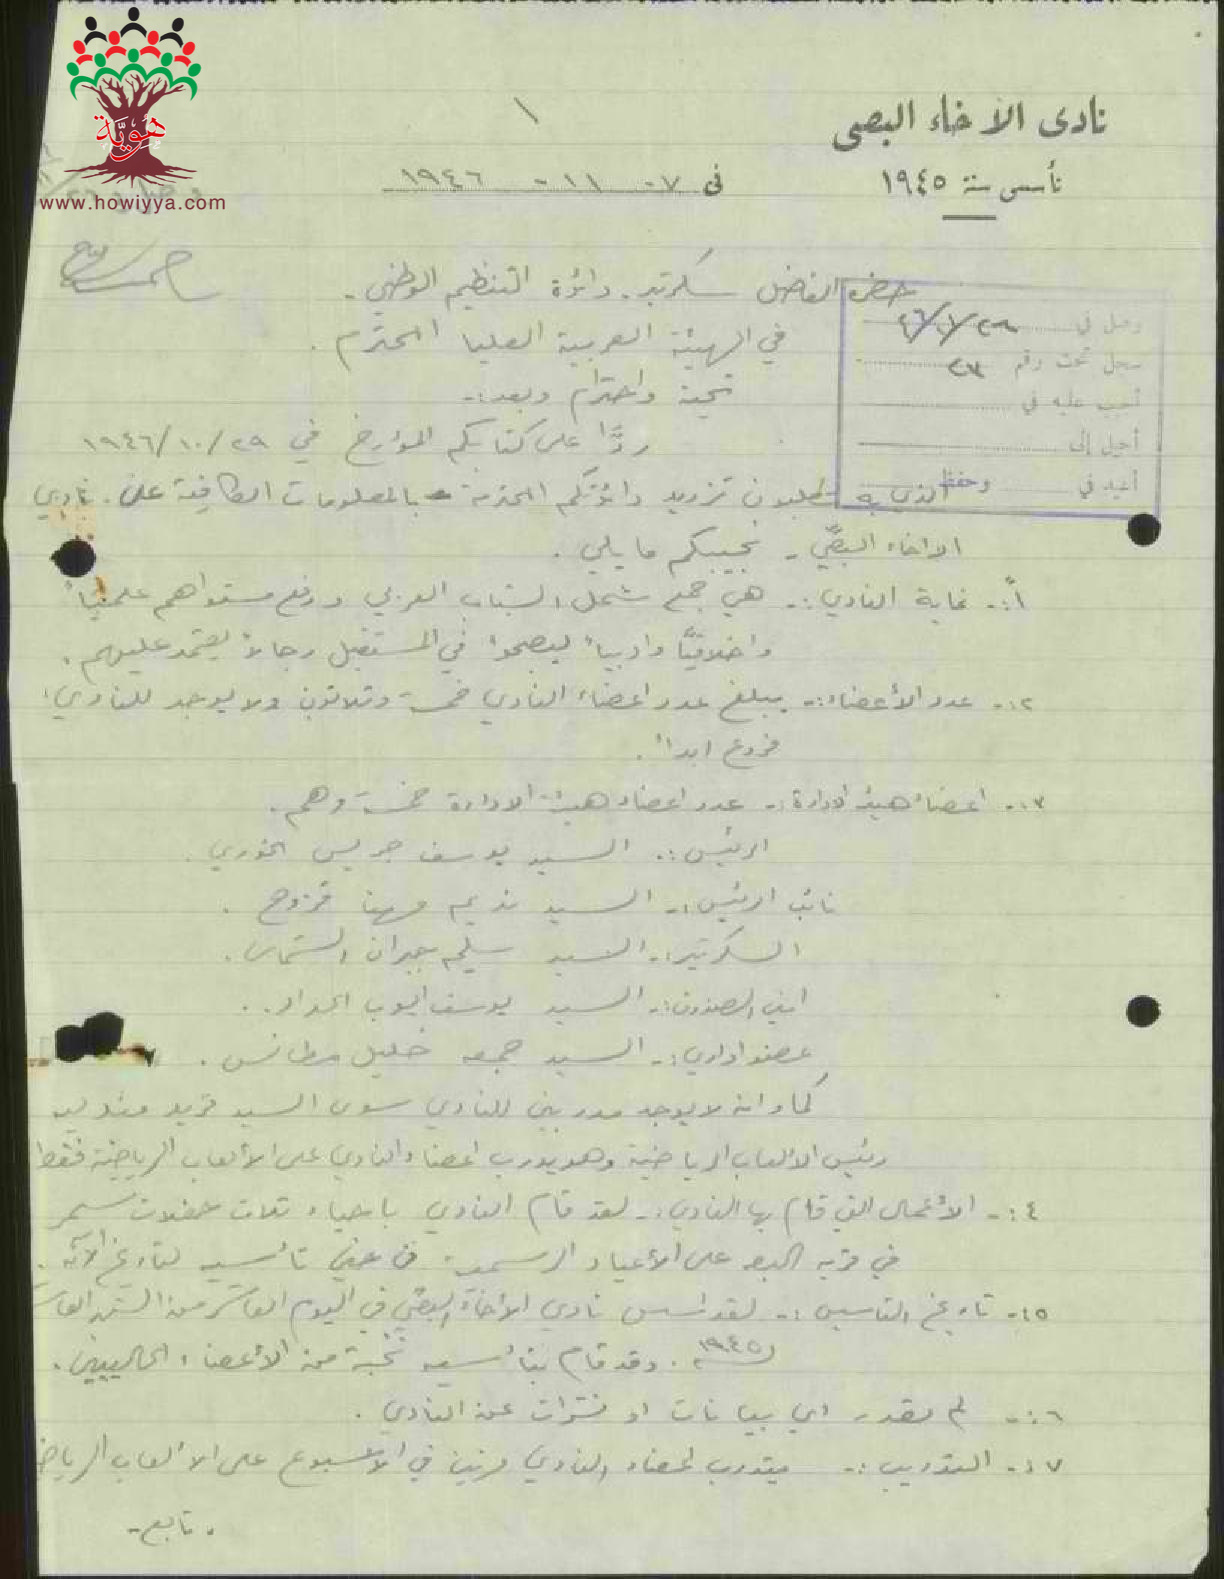 هوية
www.howiyya.com
١
نادى الأخاء البصى
تأسس سنة ١٩٤٥
فى ٧ - ١١ - ١٩٤٦
حضرة الفاضل سكرتير دائرة التنظيم الوطني -
في الهيئة العربية العليا المحترم .
تحية واحترام وبعد :-
وصل في
سجل تحت رقم
أجيب عليه في
أحيل إلى
أعيد في وحفظ
ردًّا على كتابكم المؤرخ في ٢٩/١٠/١٩٤٦
الذي به تطلبون تزويد دائرتكم المحترمة بالمعلومات الكافية عن نادي
الاخاء البصّي - نجيبكم ما يلي .
١ً :- غاية النادي :- هي جمع شمل الشباب العربي ورفع مستواهم علمياً
واخلاقيًّا وادبياً ليصبحوا في المستقبل رجالاً يعتمد عليهم .
٢ :- عدد الأعضاء :- يبلغ عدد اعضاء النادي خمسة وثلاثون ولا يوجد للنادي
فروع ابداً .
٣ :- اعضاء هيئة الادارة :- عدد اعضاء هيئة الادارة خمسة وهم .
الرئيس :- السيد يوسف جريس الخوري .
نائب الرئيس :- السيد نديم مهنا قزوح .
السكرتير :- السيد سليم جبران الشماس .
امين الصندوق :- السيد يوسف ايوب الحداد . .
عضو اداري :- السيد جمعه خليل مطانس .
كما وانه لا يوجد مدربين للنادي سوى السيد فريد
رئيس الالعاب الرياضية وهو يدرب اعضاء النادي على الألعاب الرياضية فقط
٤ :- الأعمال التي قام بها النادي :- لقد قام النادي باحياء ثلاث حفلات سمر
في قرية البصه على الأعياد الرسمية من حين تأسيسه لتاريخ الآن .
٥ :- تاريخ التأسيس :- لقد اسس نادي الاخاء البصّي في اليوم العاشر من الشهر العاشر
لسنة ١٩٤٥ . وقد قام بتأسيسه نخبة من الأعضاء الحاليين .
٦ :- لم يصدر اي بيانات او نشرات عن النادي .
٧ :- التدريب :- يتدرب اعضاء النادي مرتين في الاسبوع على الالعاب
. تابع -